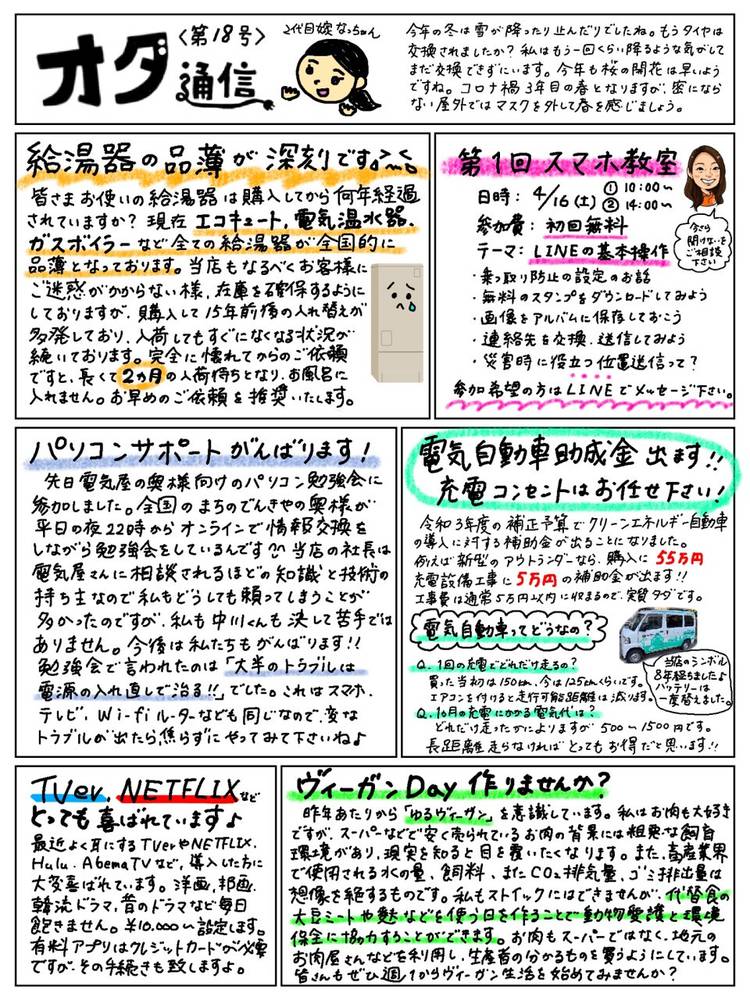 オダ通信
〈第18号〉
2代目嫁なっちゃん
今年の冬は雪が降ったり止んだりでしたね。もうタイヤは
交換されましたか?私はもう一回くらい降るような気がして
まだ交換できずにいます。今年も桜の開花は早いよう
ですね。コロナ禍3年目の春となりますが、密になら
ない屋外ではマスクを外して春を感じましょう。
給湯器の品薄が深刻です。
皆さまお使いの給湯器は購入してから何年経過
されていますか?現在エコキュート,電気温水器,
ガスボイラーなど全ての給湯器が全国的に
品薄となっております。当店もなるべくお客様に
ご迷惑がかからない様,在庫を確保するように
しておりますが,購入して15年前後の入れ替えが
多発しており,入荷してもすぐになくなる状況が
続いております。完全に壊れてからのご依頼
ですと,長くて2ヵ月の入荷待ちとなり,お風呂に
入れません。お早めのご依頼を推奨いたします。
第1回スマホ教室
日時:4/16(土)①10:00~
②14:00~
参加費:初回無料
テーマ:LINEの基本操作
・乗っ取り防止の設定のお話
・無料のスタンプをダウンロードしてみよう
・画像をアルバムに保存しておこう
・連絡先を交換,送信してみよう
・災害時に役立つ位置送信って?
参加希望の方はLINEでメッセージ下さい。
今さら
聞けないを
ご相談
下さい
パソコンサポートがんばります!
先日電気屋の奥様向けのパソコン勉強会に
参加しました。全国のまちのでんきやの奥様が
平日の夜22時からオンラインで情報交換を
しながら勉強会をしているんです 当店の社長は
電気屋さんに相談されるほどの知識と技術の
持ち主なので私もどうしても頼ってしまうことが
多かったのですが,私も中川くんも決して苦手では
ありません。今後は私たちもがんばります!!
勉強会で言われたのは「大半のトラブルは
電源の入れ直しで治る!!」でした。これはスマホ,
テレビ,Wi-fiルーターなども同じなので,変な
トラブルが出たら,焦らずにやってみて下さいね♪
電気自動車助成金出ます!!
充電コンセントはお任せ下さい!
令和3年度の補正予算でクリーンエネルギー自動車
の導入に対する補助金が出ることになりました。
例えば新型のアウトランダーなら,購入に55万円
充電設備工事に5万円の補助金が出ます!!
工事費は通常5万円以内に収まるので,実質タダです。
電気自動車ってどうなの?
Q.1回の充電でどれだけ走るの?
買った当初は150km,今は125kmくらいです。
エアコンを付けると走行可能距離は減ります。
Q.1ヵ月の充電にかかる電気代は?
どれだけ走ったかによりますが500~1500円です。
長距離走らなければとってもお得だと思います!!
当店のシンボル
8年経ちました♪
バッテリーは
一度替えました。
TVer,NETFLIXなど
とっても喜ばれています♪
最近よく耳にするTVerやNETFLIX,
Hulu,AbemaTVなど,導入した方に
大変喜ばれています。洋画,邦画,
韓流ドラマ,昔のドラマなど毎日
飽きません。¥10,000~設定します。
有料アプリはクレジットカードが必要
ですが,その手続きも致しますよ。
ヴィーガンDay作りませんか?
昨年あたりから「ゆるヴィーガン」を意識しています。私はお肉も大好き
ですが,スーパーなどで安く売られているお肉の背景には粗悪な飼育
環境があり,現実を知ると目を覆いたくなります。また,畜産業界
で使用される水の量,飼料,またCO2排気量,ゴミ排出量は
想像を絶するものです。私もストイックにはできませんが,代替食の
大豆ミートや麩などを使う日を作ることで動物愛護と環境
保全に協力することができます。お肉もスーパーではなく,地元の
お肉屋さんなどを利用し,生産者の分かるものを買うようにしています。
皆さんもぜひ週1からヴィーガン生活を始めてみませんか?